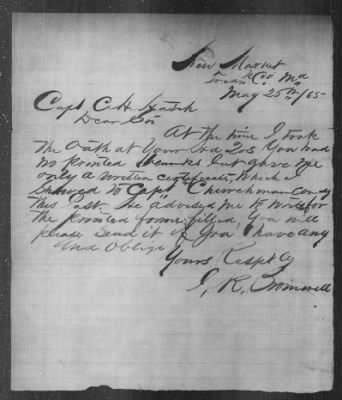 New Market
Fred'k Co Md
May 25th /65
Capt C. H. Hatch
Dear Sir
At the time I took
the Oath at Your Hd Qrs You had
no printed blanks but gave me
only a written certificate, which I
showed to Capt Churchman Comdg
this Post. He advised me to
the printed form filled You will
please send it if You have any
And Oblige
Yours Respt ly
J. R. Bromwell